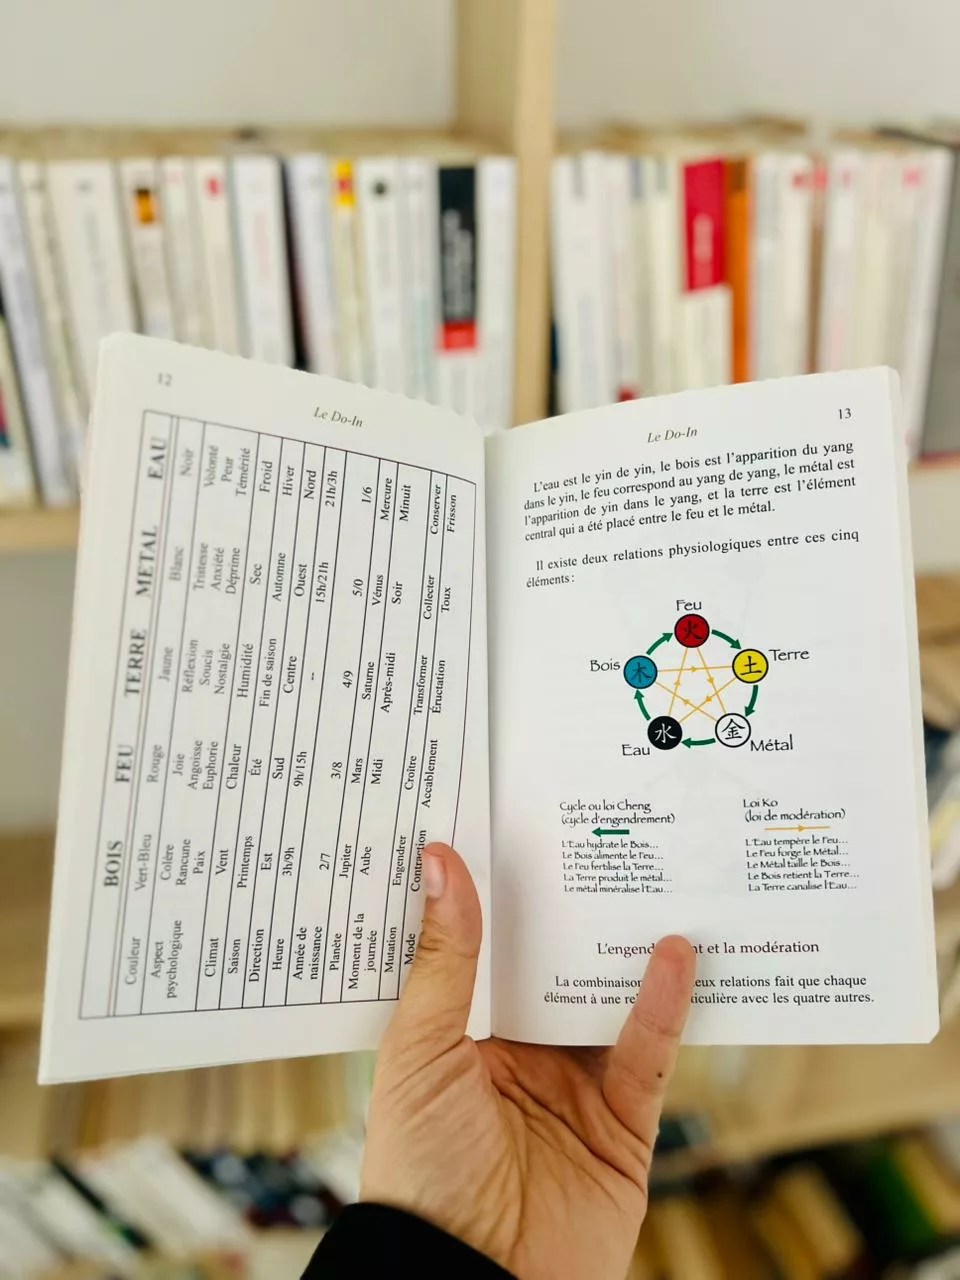 12
Le Do-In
BOIS FEU TERRE METAL EAU
Couleur Vert-Bleu Rouge Jaune Blanc Noir
Aspect psychologique Colère Rancune Paix Joie Angoisse Euphorie Réflexion Soucis Nostalgie Tristesse Anxiété Déprime Volonté Peur Témérité
Climat Vent Chaleur Humidité Sec Froid
Saison Printemps Été Fin de saison Automne Hiver
Direction Est Sud Centre Ouest Nord
Heure 3h/9h 9h/15h -- 15h/21h 21h/3h
Année de naissance 2/7 3/8 4/9 5/0 1/6
Planète Jupiter Mars Saturne Vénus Mercure
Moment de la journée Aube Midi Après-midi Soir Minuit
Mutation Engendrer Croître Transformer Collecter Conserver
Mode Contraction Accablement Éructation Toux Frisson
13
Le Do-In
L'eau est le yin de yin, le bois est l'apparition du yang
dans le yin, le feu correspond au yang de yang, le métal est
l'apparition de yin dans le yang, et la terre est l'élément
central qui a été placé entre le feu et le métal.
Il existe deux relations physiologiques entre ces cinq
éléments :
Feu
火
Bois
木
土
Terre
Eau
水
金
Métal
Cycle ou loi Cheng
(cycle d'engendrement)
L'Eau hydrate le Bois...
Le Bois alimente le Feu...
Le Feu fertilise la Terre...
La Terre produit le métal...
Le métal minéralise l'Eau...
Loi Ko
(loi de modération)
L'Eau tempère le Feu...
Le Feu forge le Métal...
Le Métal taille le Bois...
Le Bois retient la Terre...
La Terre canalise l'Eau...
et la modération
La combinaison relations fait que chaque
élément à une avec les quatre autres.